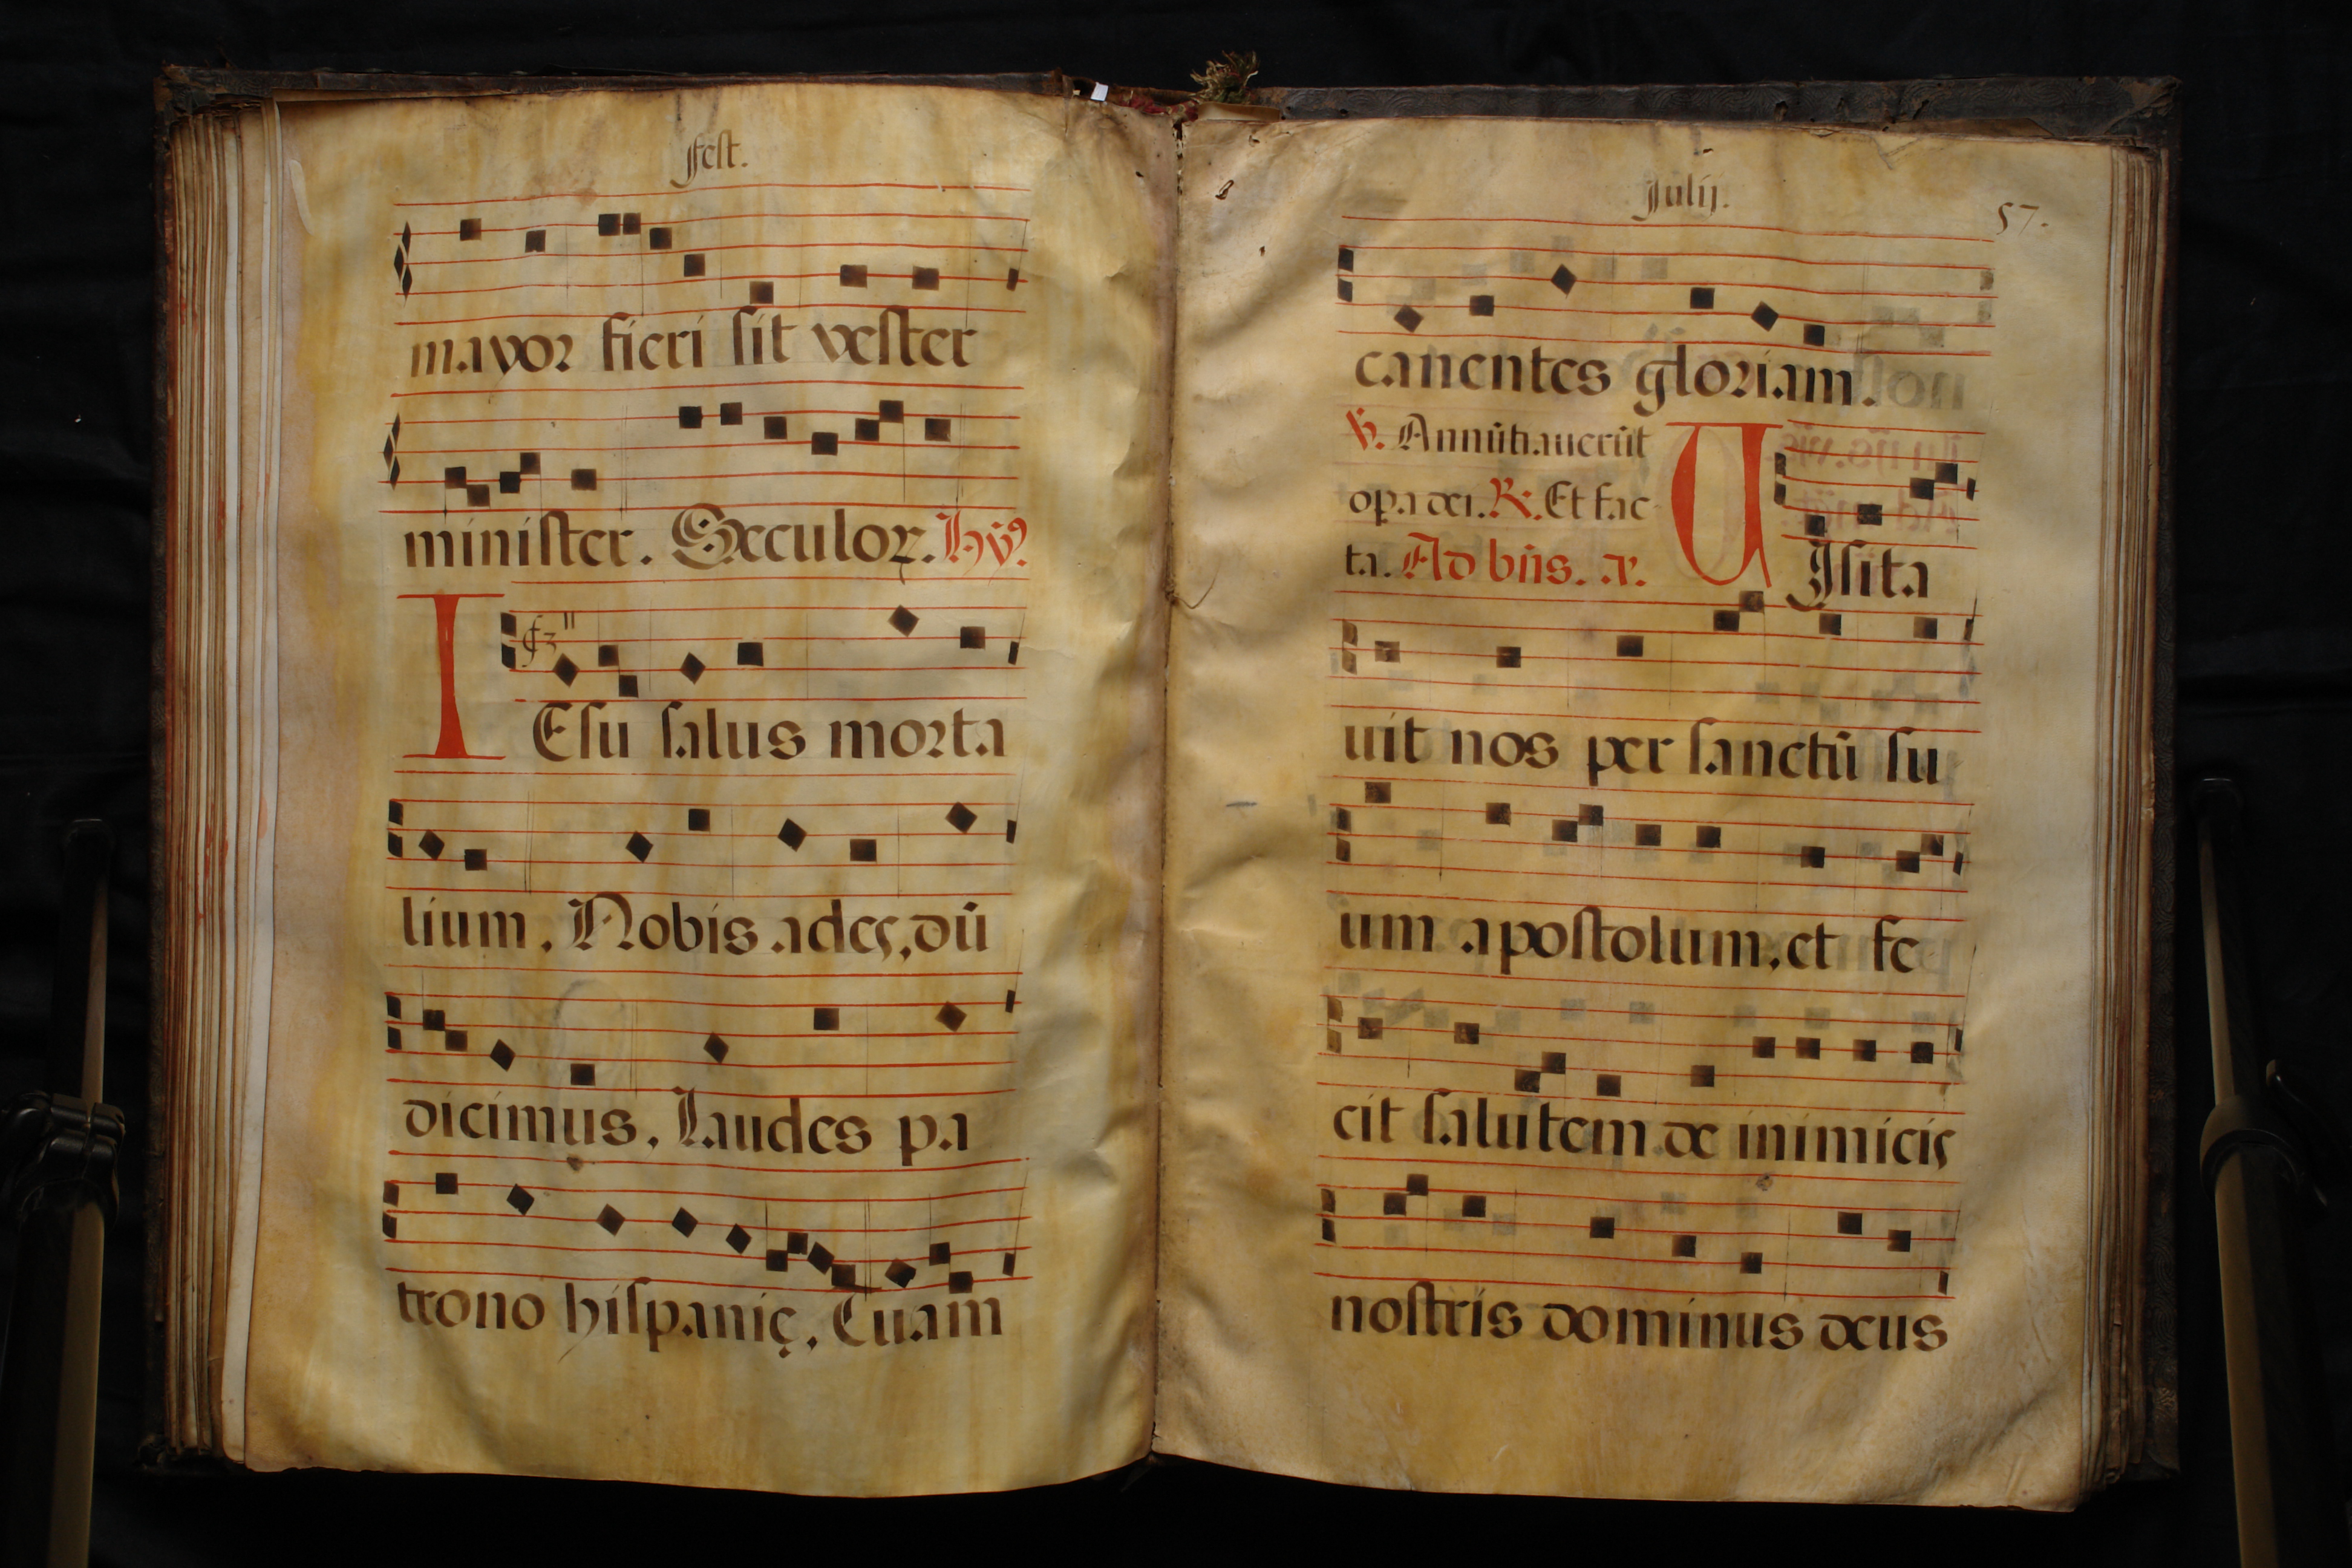 fest.
mayor fieri sit vester
minister. Sæculoꝝ. hỹꝰ
IEsu salus morta
lium, Nobis ades, dū
dicimus, Laudes pa
trono hispanię, Cuam
Julij.
57.
canentes gloriam.
℣. Annūtiauerūt
opa dei. ℟. Et fac
ta. Ad bñs. a.
VIsita
uit nos per sanctū su
um apostolum, et fe
cit salutem de inimicis
nostris dominus deus